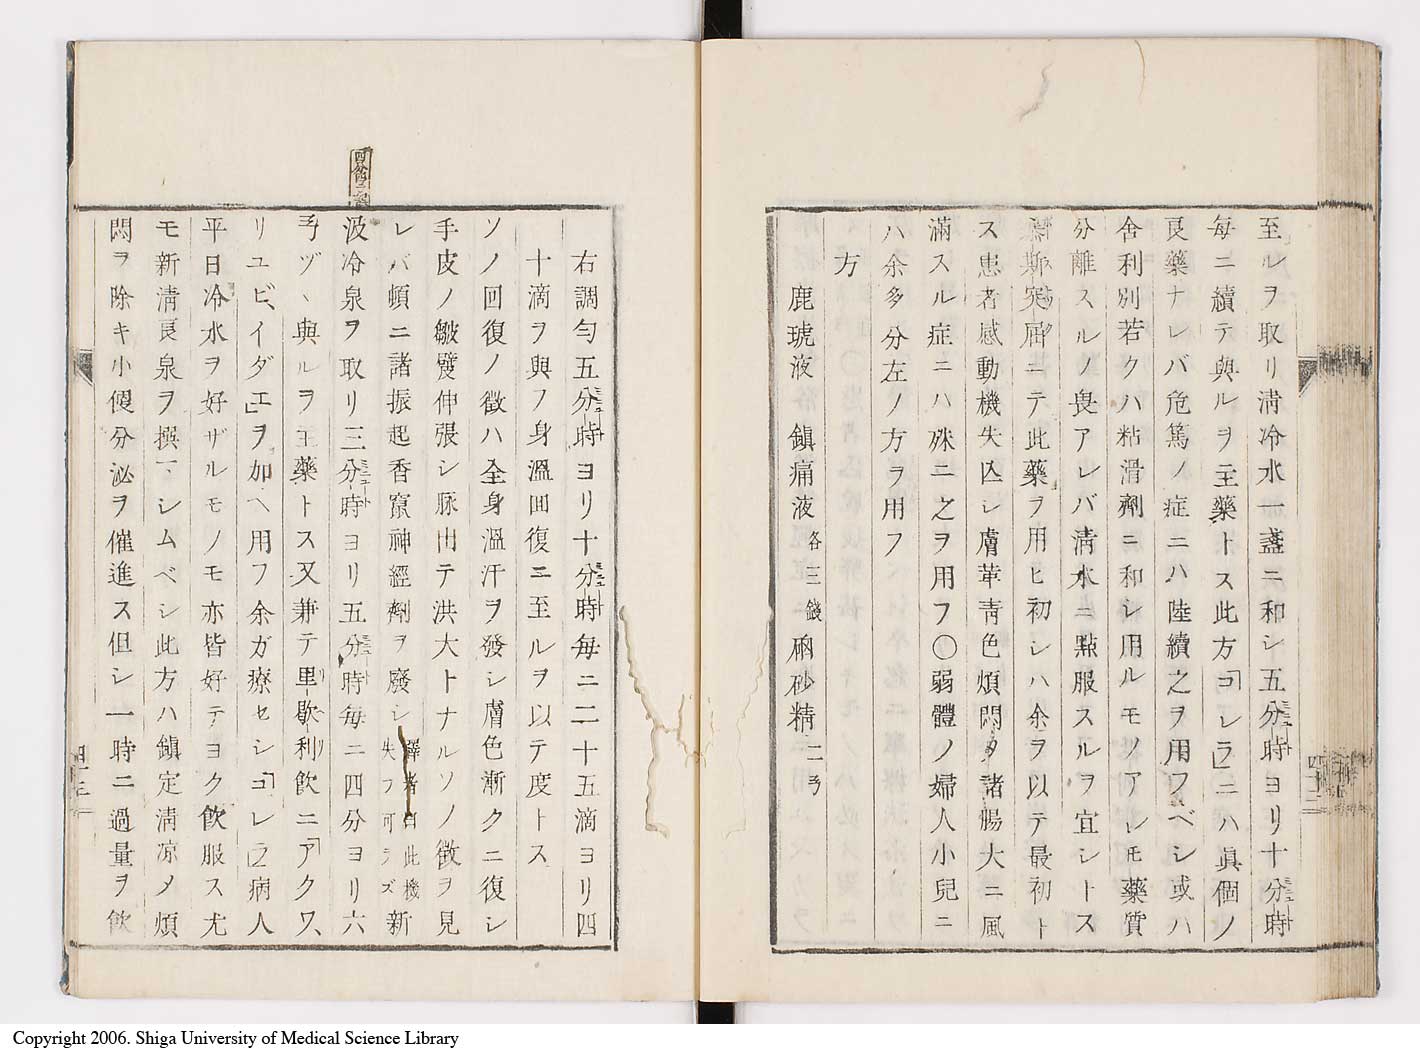 至ルヲ取リ淸冷水一盞ニ和シ五分時ヨリ十分時
每ニ續テ與ルヲ主藥トス此方「コレラ」ニハ眞個ノ
良藥ナレバ危篤ノ症ニハ陸續之ヲ用フベシ或ハ
舍利別若クハ粘滑劑ニ和シ用ルモノアレモ藥質
分離スルノ畏アレバ淸水ニ點服スルヲ宜シトス
斯突屈ニテ此藥ヲ用ヒ初シハ余ヲ以テ最初ト
ス患者感動機失亾シ膚革靑色煩悶シ諸腸大ニ風
滿スル症ニハ殊ニ之ヲ用フ〇弱體ノ婦人小兒ニ
ハ余多分左ノ方ヲ用フ
方
鹿琥液 鎭痛液各三錢 硇砂精二ヲ
四十二
右調勻五分時ヨリ十分時每ニ二十五滴ヨリ四
十滴ヲ與フ身溫回復ニ至ルヲ以テ度トス
ソノ回復ノ徵ハ全身溫汗ヲ發シ膚色漸クニ復シ
手皮ノ皺襞伸張シ脈由テ洪大トナルソノ徵ヲ見
レバ頓ニ諸振起香竄神經劑ヲ廢シ譯者曰此機失フ可ラズ新
汲冷泉ヲ取リ三分時ヨリ五分時每ニ四分ヨリ六
ヲヅヽ與ルヲ主藥トス又兼テ里歇利飮ニ「アクワ、
リユビ、イダエ」ヲ加ヘ用フ余ガ療セシ「コレラ」病人
平日冷水ヲ好ザルモノモ亦皆好テヨク飮服ス尤
モ新淸良泉ヲ撰マシムベシ此方ハ鎭定淸凉メ煩
悶ヲ除キ小便分泌ヲ催進ス但シ一時ニ過量ヲ飮
四十三
Copyright 2006. Shiga University of Medical Science Library